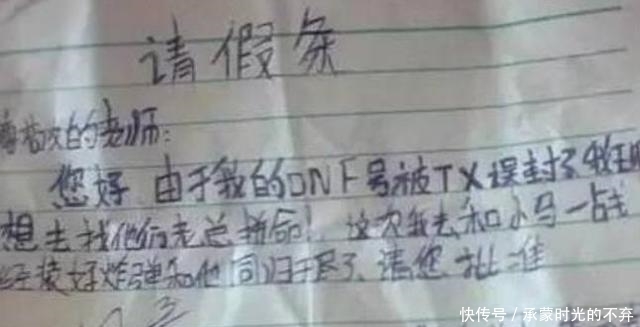 请假条
尊敬的老师:
您好 由于我的DNF号被TX误封了 我
想去找他们老总拼命! 这次我去和小马一战
装好炸弹和他同归于尽了、请您批准
快传号/承蒙时光的不弃